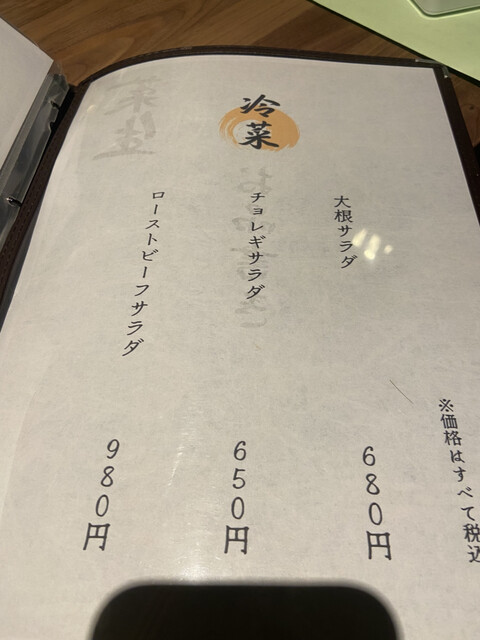 ※価格はすべて税込
冷菜
大根サラダ
680円
チョレギサラダ
650円
ローストビーフサラダ
980円